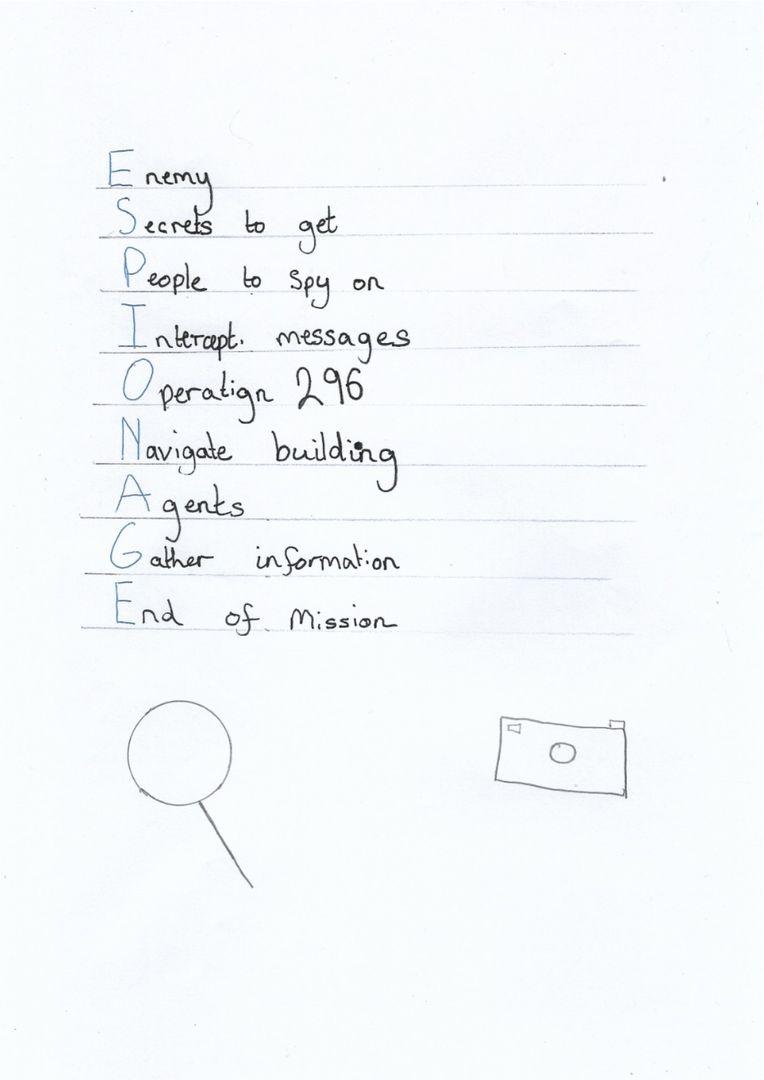 Enemy
Secrets to get
People to spy on
Intercept. messages
Operatign 296
Navigate building
Agents
Gather information
End of Mission